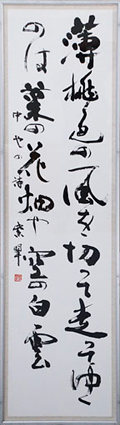 薄桃色の風を切って走ってゆく
のは菜の花畑や空の白雲
中也の詩